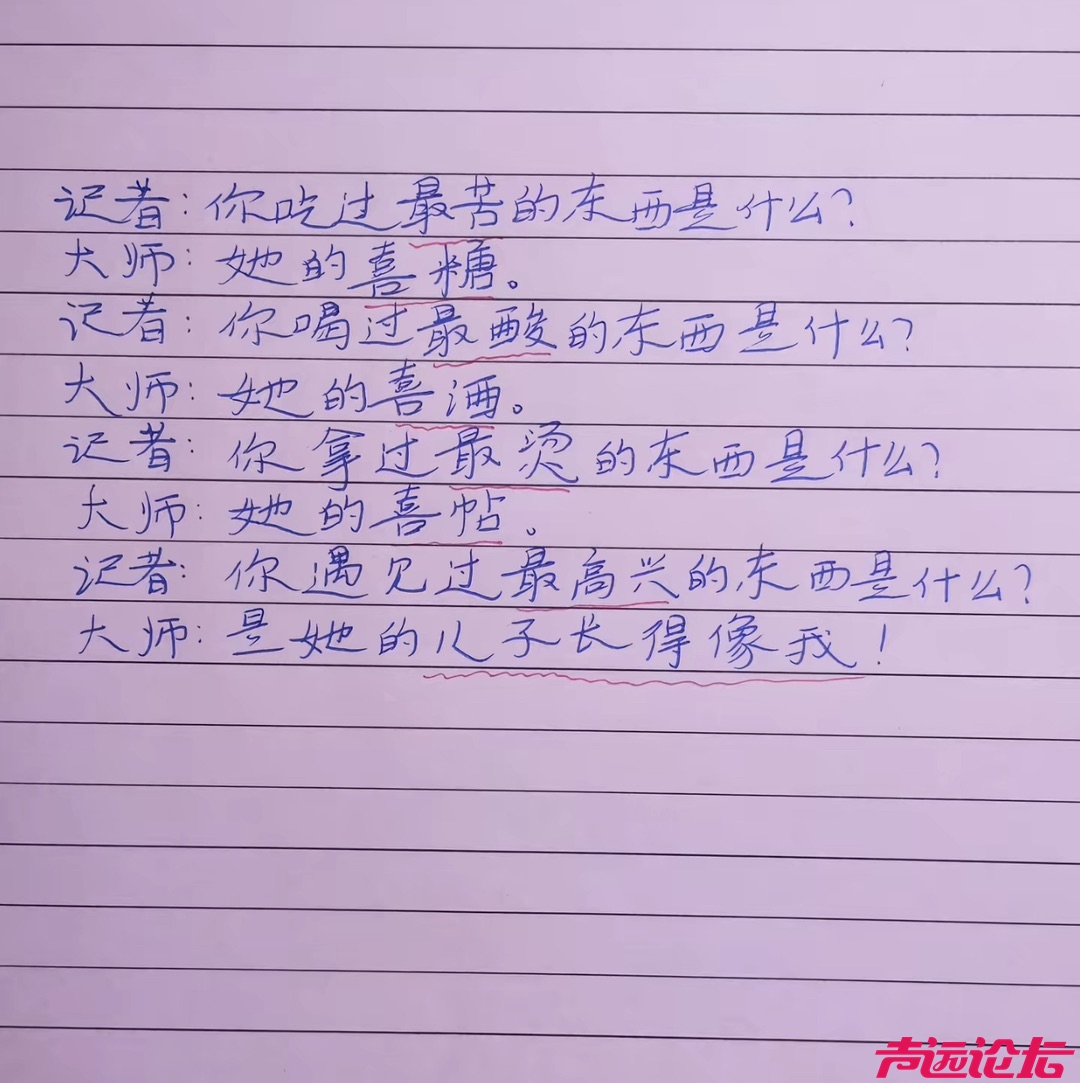 记者：你吃过最苦的东西是什么？
大师：她的喜糖。
记者：你喝过最酸的东西是什么？
大师：她的喜酒。
记者：你拿过最烫的东西是什么？
大师：她的喜帖。
记者：你遇见过最高兴的东西是什么？
大师：是她的儿子长得像我！
声远论坛